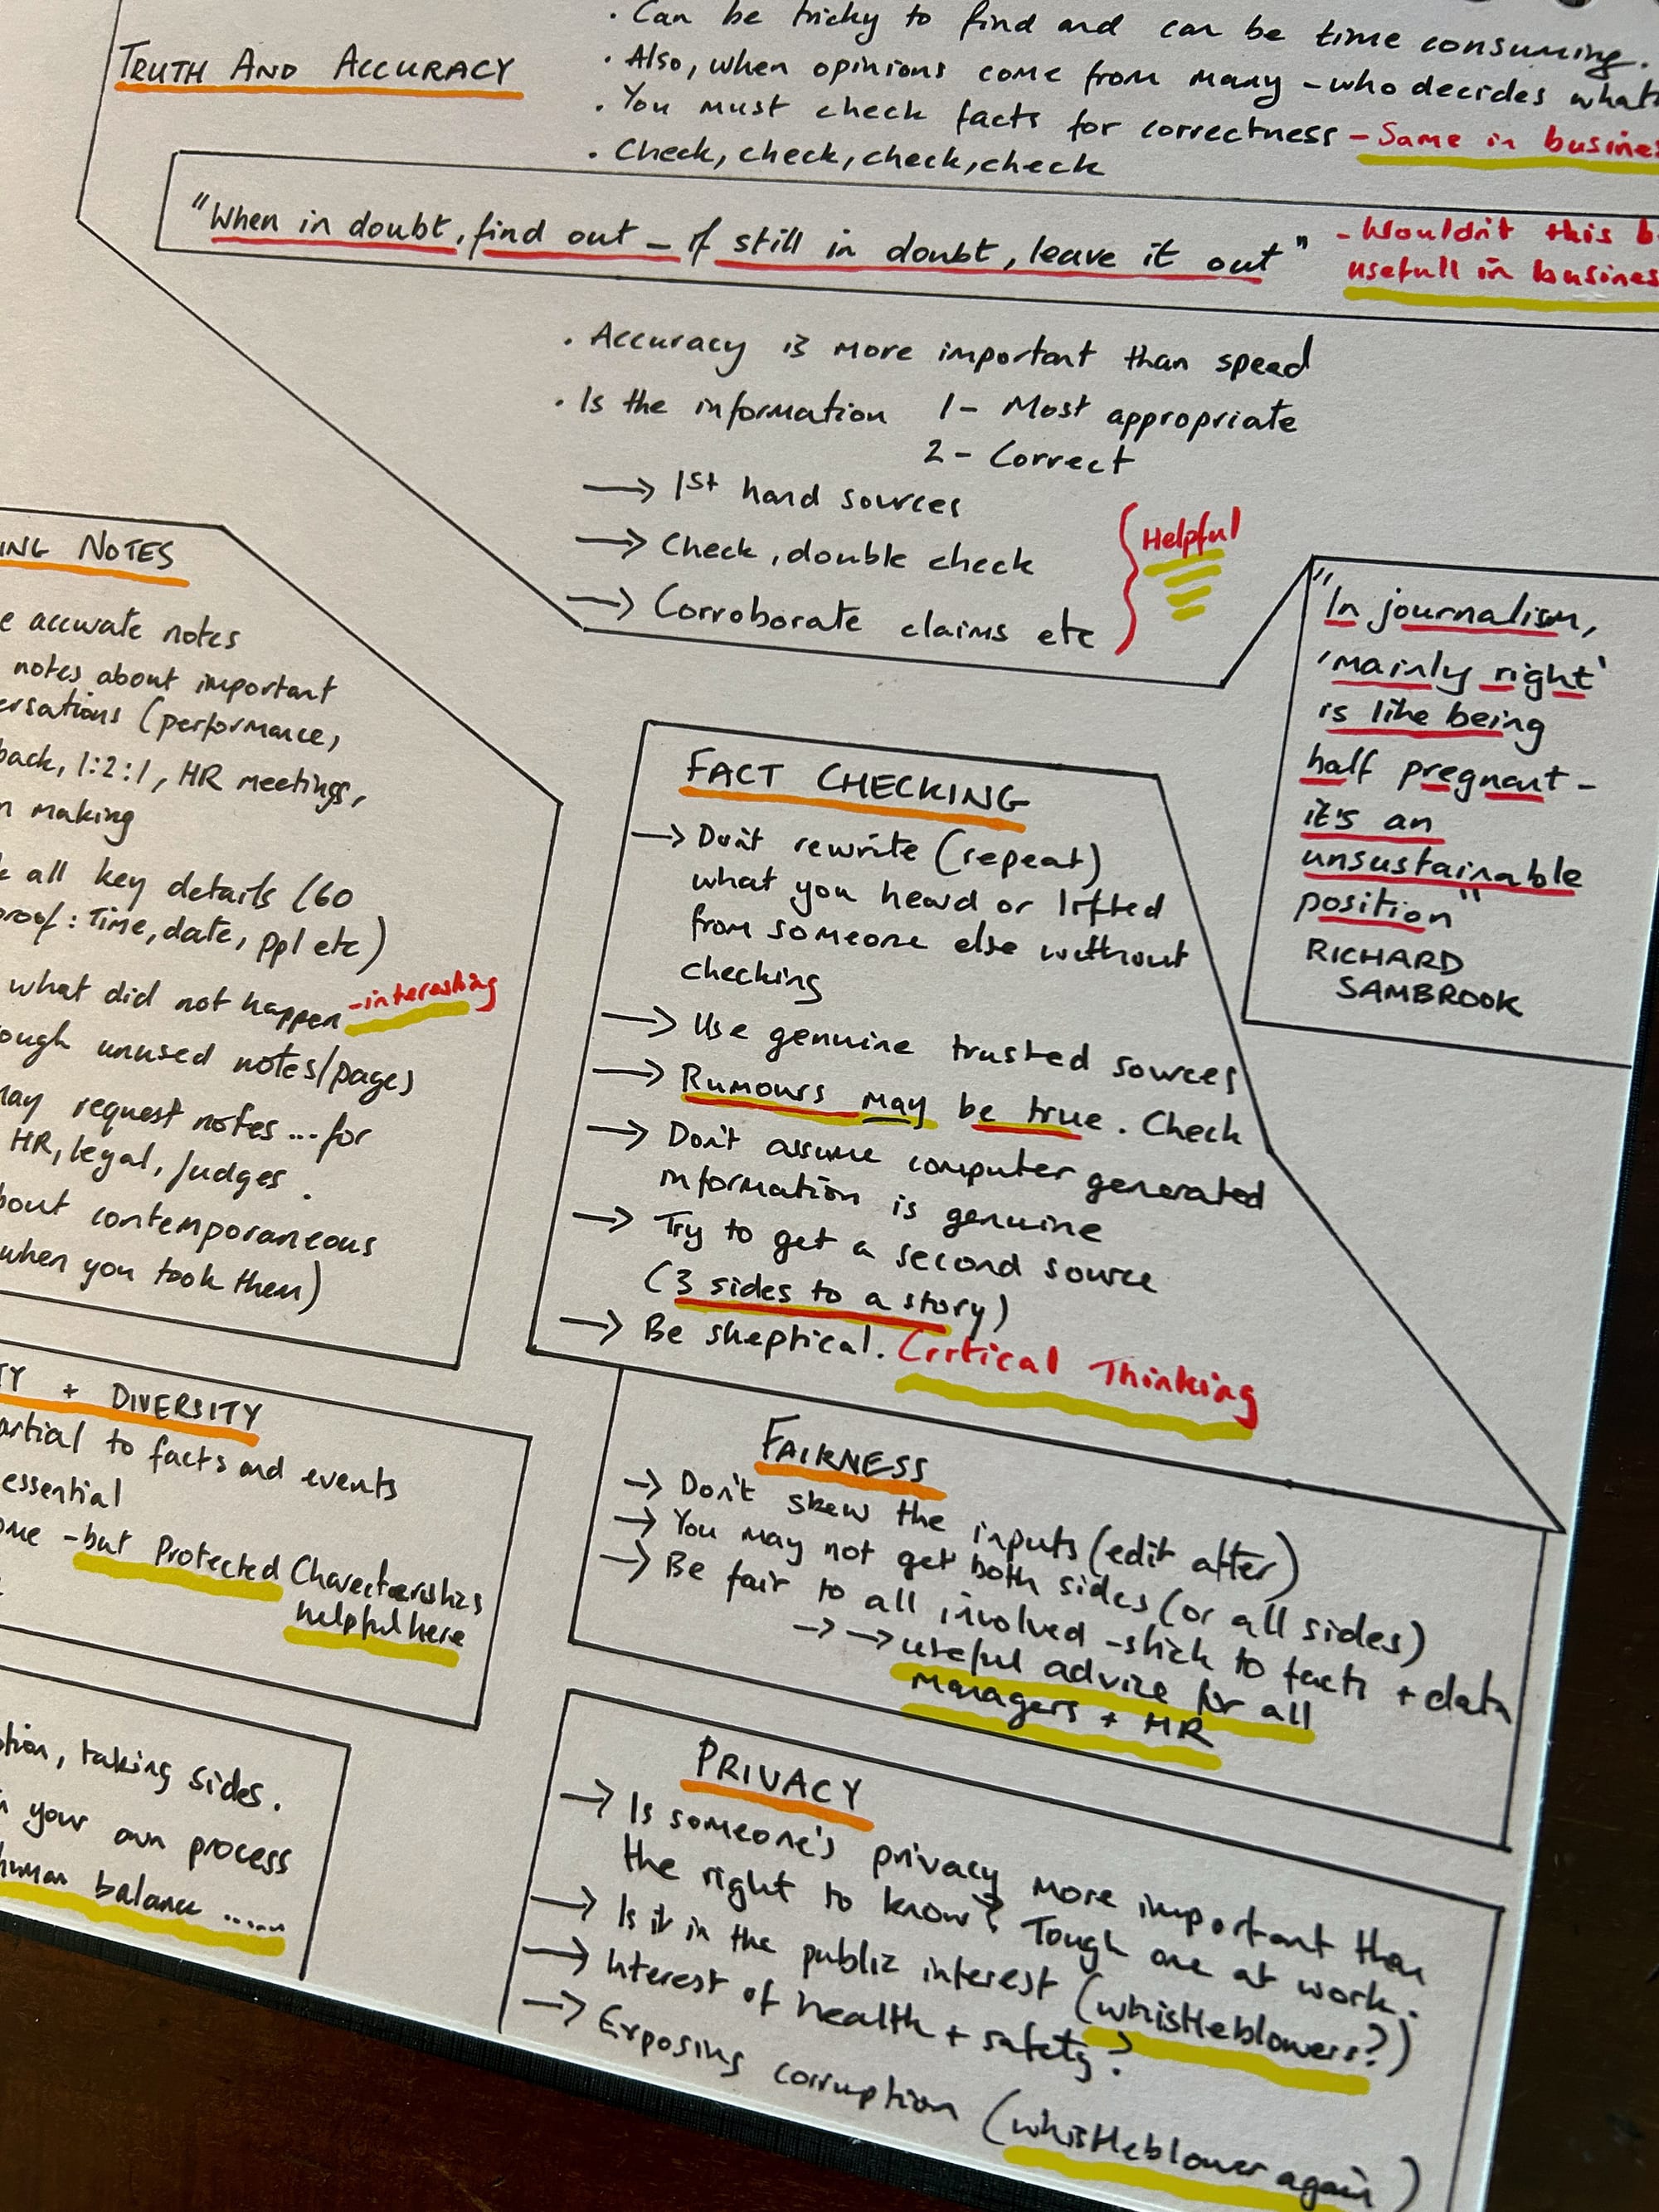 TRUTH AND ACCURACY
. Can be tricky to find and can be time consuming.
. Also, when opinions come from many - who decides what
. You must check facts for correctness - Same in busines
. Check, check, check, check
"When in doubt, find out - if still in doubt, leave it out" - Wouldn't this b
usefull in busines
. Accuracy is more important than speed
. Is the information 1- Most appropriate
2- Correct
→ 1st hand sources
→ Check, double check
→ Corroborate claims etc
Helpful
"In journalism,
'mainly right'
is like being
half pregnant -
it's an
unsustainable
position"
RICHARD
SAMBROOK
ING NOTES
e accurate notes
notes about important
ersations (performance,
back, 1:2:1, HR meetings,
n making
all key details (60
proof: Time, date, ppl etc)
what did not happen - interesting
ough unused notes/pages
may request notes... for
HR, legal, judges.
bout contemporaneous
when you took them)
FACT CHECKING
→ Don't rewrite (repeat)
what you heard or lifted
from someone else without
checking
→ Use genuine trusted sources
→ Rumours may be true. Check
→ Don't assume computer generated
information is genuine
→ Try to get a second source
(3 sides to a story)
→ Be skeptical. Critical Thinking
TY + DIVERSITY
artial to facts and events
essential
ome - but Protected Charecteristics
helpful here
FAIRNESS
→ Don't skew the inputs (edit after)
→ You may not get both sides (or all sides)
→ Be fair to all involved - stick to facts + data
→ → useful advice for all
Managers + HR
tion, taking sides.
your own process
human balance ......
PRIVACY
→ Is someone's privacy more important than
the right to know? Tough one at work.
→ Is it in the public interest (whistleblowers?)
→ Interest of health + safety?
→ Exposing corruption (whistleblower again)